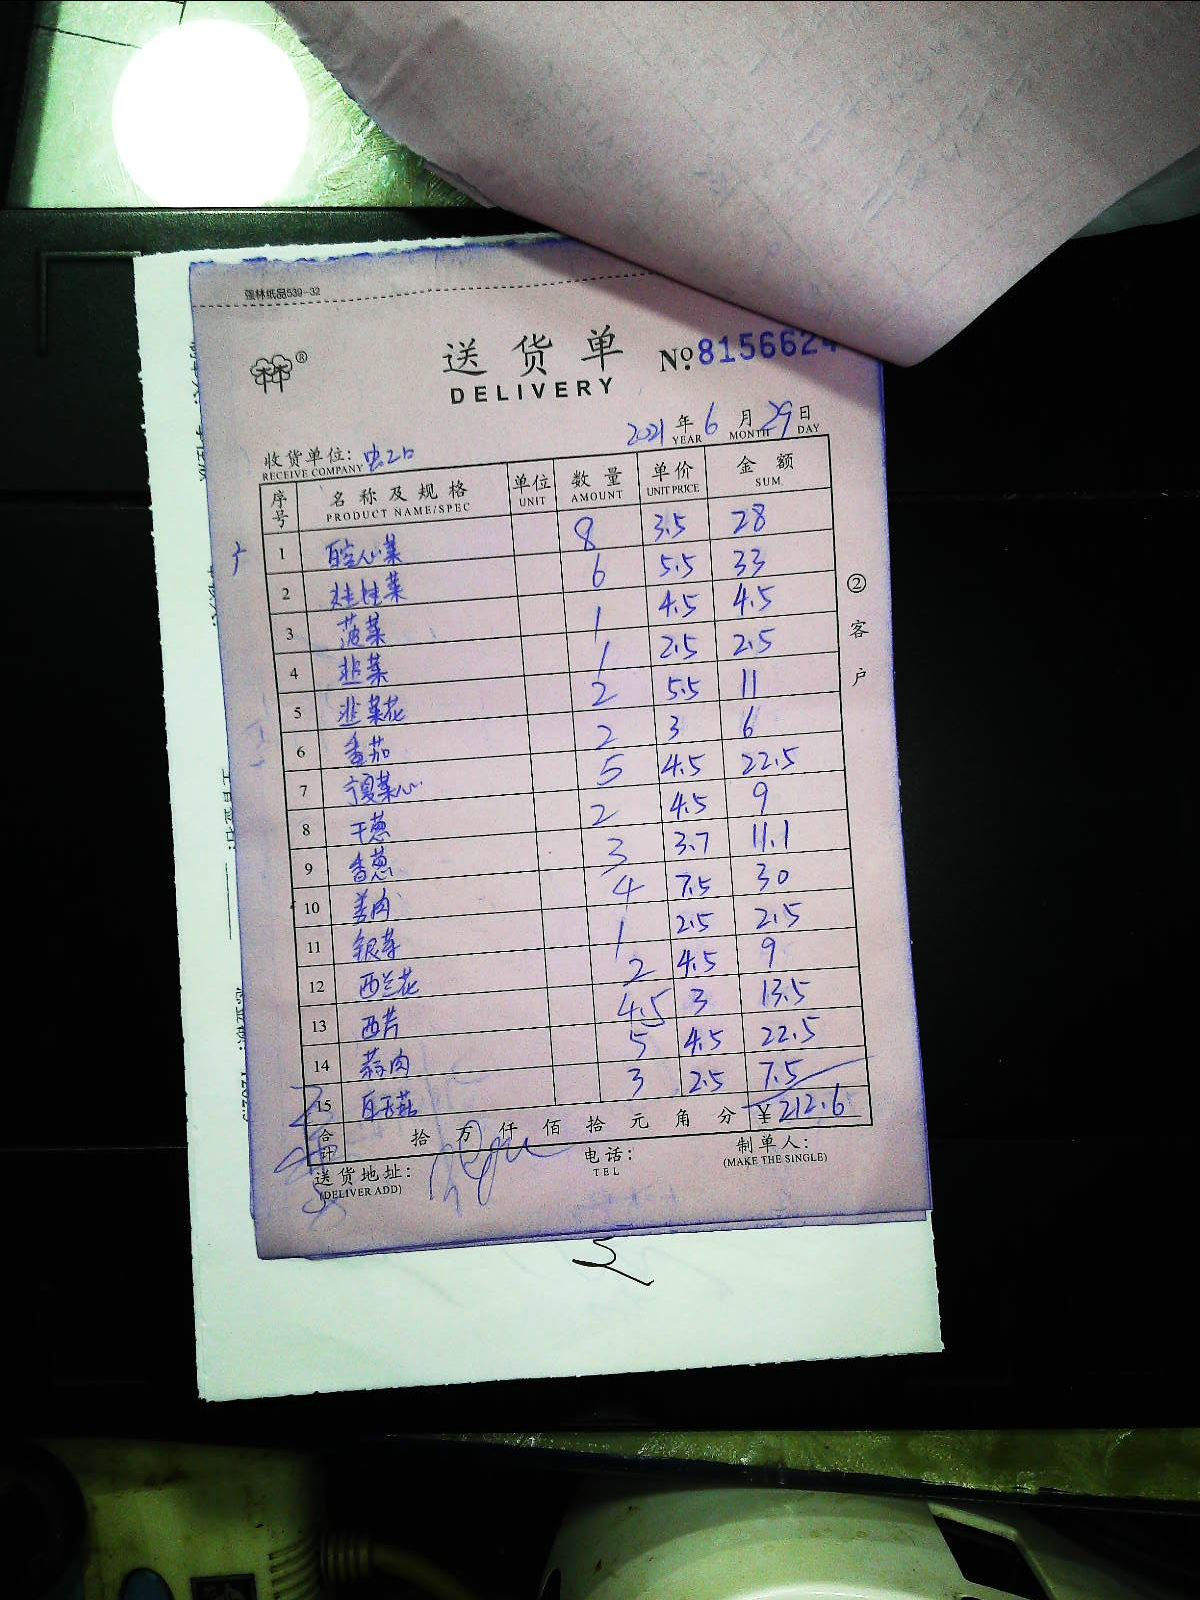 强林纸品539-32
送货单 №8156624
DELIVERY
2021年6月29日
YEAR MONTH DAY
收货单位:
RECEIVE COMPANY
序号 名称及规格 单位 数量 单价 金额
PRODUCT NAME/SPEC UNIT AMOUNT UNIT PRICE SUM
1 白空心菜 8 3.5 28
2 娃娃菜 6 5.5 33
3 菠菜 1 4.5 4.5
4 韭菜 1 2.5 2.5
5 韭菜花 2 5.5 11
6 番茄 2 3 6
7 宁夏菜心 5 4.5 22.5
8 干葱 2 4.5 9
9 香葱 3 3.7 11.1
10 姜肉 4 7.5 30
11 银芽 1 2.5 2.5
12 西兰花 2 4.5 9
13 西芹 4.5 3 13.5
14 蒜肉 5 4.5 22.5
15 白玉菇 3 2.5 7.5
合计 拾万仟佰拾元角分 ¥212.6
送货地址: 电话: 制单人:
(DELIVER ADD) TEL (MAKE THE SINGLE)
②客户